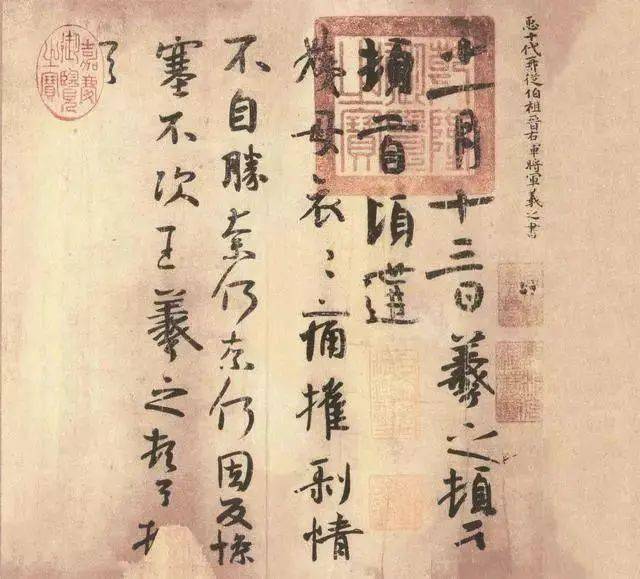 臣十代再從伯祖晉右軍將軍羲之書
十一月十三日羲之頓首
頓首頃遘
姨母哀〻痛摧剥情
不自勝奈何奈何因反慘
塞不次王羲之頓首頓
首
乾隆御覽之寶
嘉慶御覽之寶